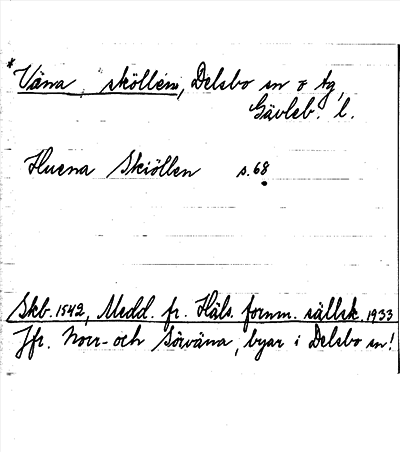 *Väna, sköllen, Delsbo sn o tg,
Gävleb. l.
Huena Skiöllen s. 68
Skb. 1542, Medd. fr. Häls. fornm. sällsk. 1933
Jfr. Norr- och Sörväna, byar i Delsbo sn!